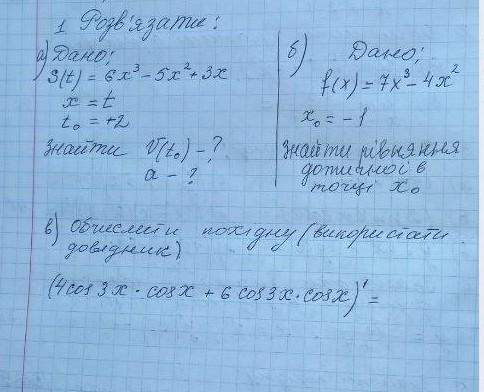 1 Розв'язати:
а) Дано:
S(t) = 6x³ - 5x² + 3x
x = t
t₀ = +2
Знайти V(t₀) - ?
a - ?
б) Дано:
f(x) = 7x³ - 4x²
x₀ = -1
Знайти рівняння
дотичної в
точці x₀
в) Обчислити похідну (використати
довідник)
(4cos3x · cosx + 6cos3x · cosx)' =